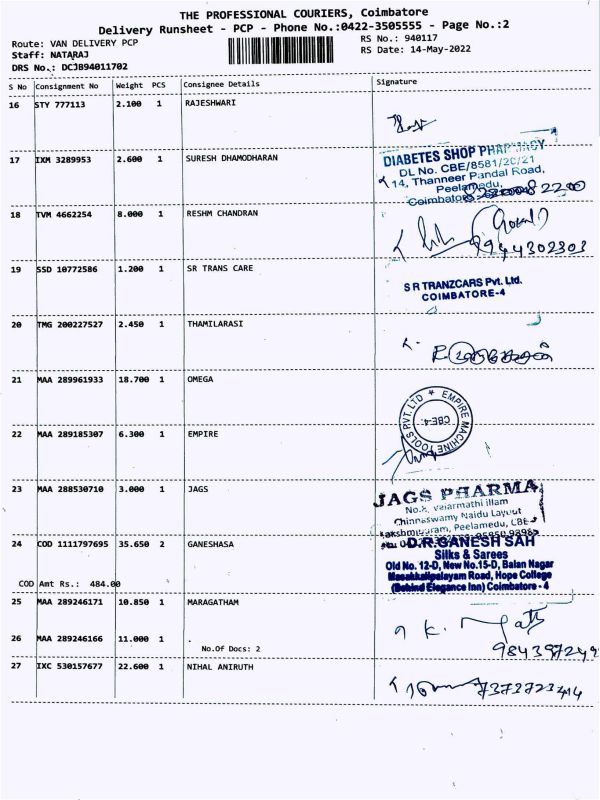 THE PROFESSIONAL COURIERS, Coimbatore
Delivery Runsheet - PCP - Phone No.:0422-3505555 - Page No.:2
Route: VAN DELIVERY PCP
RS No.: 940117
Staff: NATARAJ
RS Date: 14-May-2022
DRS No.: DCJB94011702
S No Consignment No Weight PCS Consignee Details Signature
16 STY 777113 2.100 1 RAJESHWARI
17 IXM 3289953 2.600 1 SURESH DHAMODHARAN
DIABETES SHOP PHARMACY
DL No. CBE/8581/20/21
14, Thanneer Pandal Road,
Peelamedu,
Coimbatore
18 TVM 4662254 8.000 1 RESHM CHANDRAN
9944302303
19 SSD 10772586 1.200 1 SR TRANS CARE
S R TRANZCARS Pvt. Ltd.
COIMBATORE-4
20 TMG 200227527 2.450 1 THAMILARASI
21 MAA 289961933 18.700 1 OMEGA
EMPIRE MACHINE TOOLS PVT. LTD
CBE-4.
22 MAA 289185307 6.300 1 EMPIRE
23 MAA 288530710 3.000 1 JAGS
JAGS PHARMA
Chinnaswamy Naidu Layout
Lakshmipuram, Peelamedu, CBE-4
24 COD 1111797695 35.650 2 GANESHASA
D.R.GANESH SAH
Silks & Sarees
Old No. 12-D, New No.15-D, Balan Nagar
Masakkalipalayam Road, Hope College
(Behind Elegance Inn) Coimbatore - 4
COD Amt Rs.: 484.00
25 MAA 289246171 10.850 1 MARAGATHAM
26 MAA 289246166 11.000 1 .
No.Of Docs: 2
27 IXC 530157677 22.600 1 NIHAL ANIRUTH
7373723414